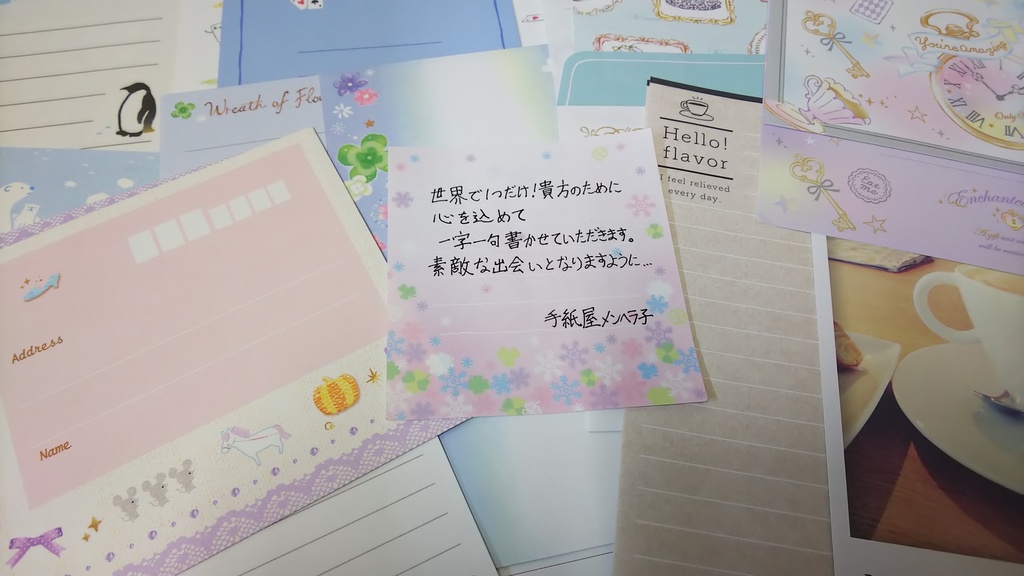 世界で1つだけ!貴方のために
心を込めて
一字一句書かせていただきます。
素敵な出会いとなりますように...
手紙屋メンヘラ子
Wreath of Flo
Hello!
flavor
I feel relieved
every day.
Address
Name
Only
Eat
me
Enchante
A gift
will be